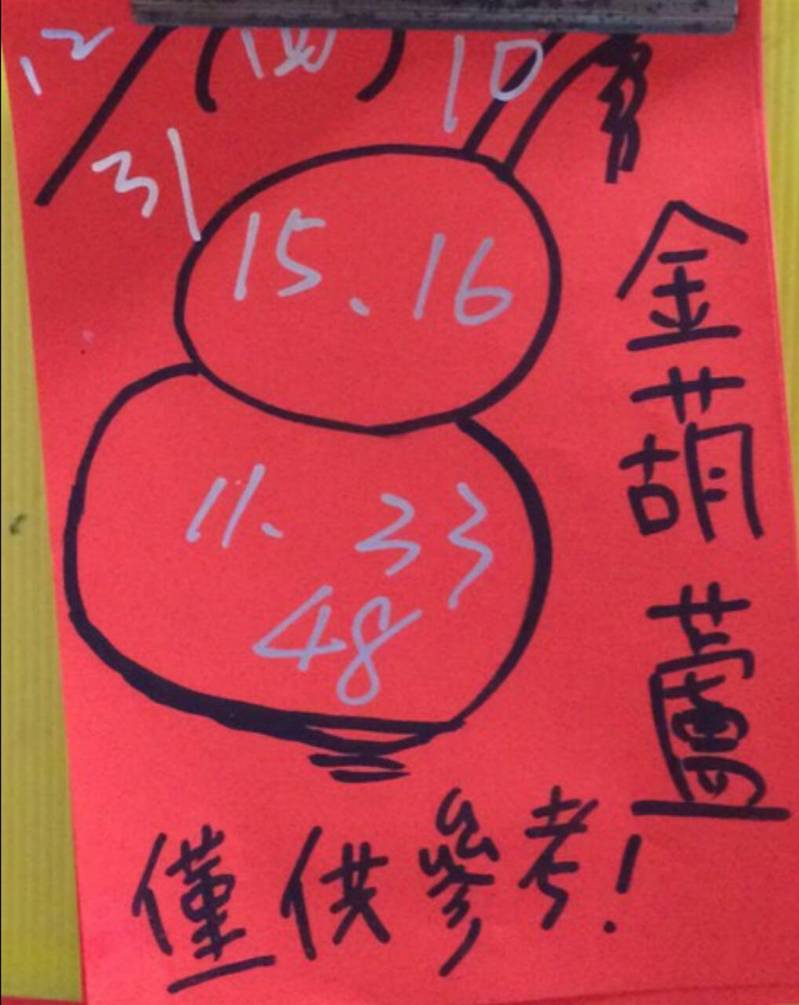 12/31 (四) 10
15.16
11. 33
48
金葫蘆
僅供參考!